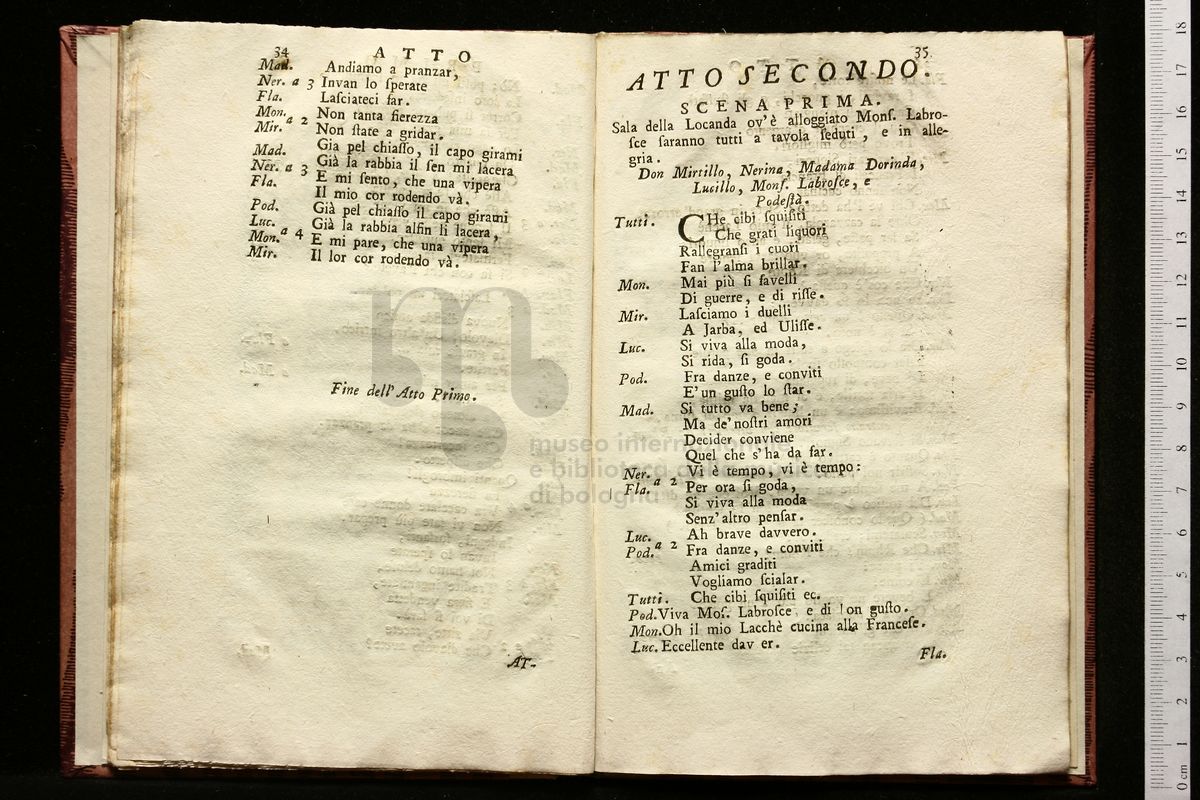 34
ATTO
Mad. Andiamo a pranzar,
Ner. a 3 Invan lo ſperate
Fla. Laſciateci far.
Mon. a 2 Non tanta fierezza
Mir. Non ſtate a gridar.
Mad. Gia pel chiaſſo, il capo girami
Ner. a 3 Già la rabbia il ſen mi lacera
Fla. E mi ſento, che una vipera
Il mio cor rodendo và.
Pod. Già pel chiaſſo il capo girami
Luc. a 4 Già la rabbia alfin li lacera,
Mon. E mi pare, che una vipera
Mir. Il lor cor rodendo và.
Fine dell'Atto Primo.
AT-
35
ATTO SECONDO.
SCENA PRIMA.
Sala della Locanda ov'è alloggiato Monſ. Labro-
ſce ſaranno tutti a tavola ſeduti, e in alle-
gria.
Don Mirtillo, Nerina, Madama Dorinda,
Lucillo, Monſ. Labroſce, e
Podeſtà.
Tutti. CHe cibi ſquiſiti
Che grati liquori
Rallegranſi i cuori
Fan l'alma brillar.
Mon. Mai più ſi favelli
Di guerre, e di riſſe.
Mir. Laſciamo i duelli
A Jarba, ed Uliſſe.
Luc. Si viva alla moda,
Si rida, ſi goda.
Pod. Fra danze, e conviti
E' un guſto lo ſtar.
Mad. Si tutto va bene;
Ma de' noſtri amori
Decider conviene
Quel che s'ha da far.
Ner. a 2 Vi è tempo, vi è tempo:
Fla. Per ora ſi goda,
Si viva alla moda
Senz' altro penſar.
Luc. a 2 Ah brave davvero.
Pod. Fra danze, e conviti
Amici graditi
Vogliamo ſcialar.
Tutti. Che cibi ſquiſiti ec.
Pod. Viva Moſ. Labroſce, e di on guſto.
Mon. Oh il mio Lacchè cucina alla Franceſe.
Luc. Eccellente dav er.
Fla.
museo inter
e biblioteca
di bologna
18
17
16
15
14
13
12
11
10
9
8
7
6
5
4
3
2
1
0 cm